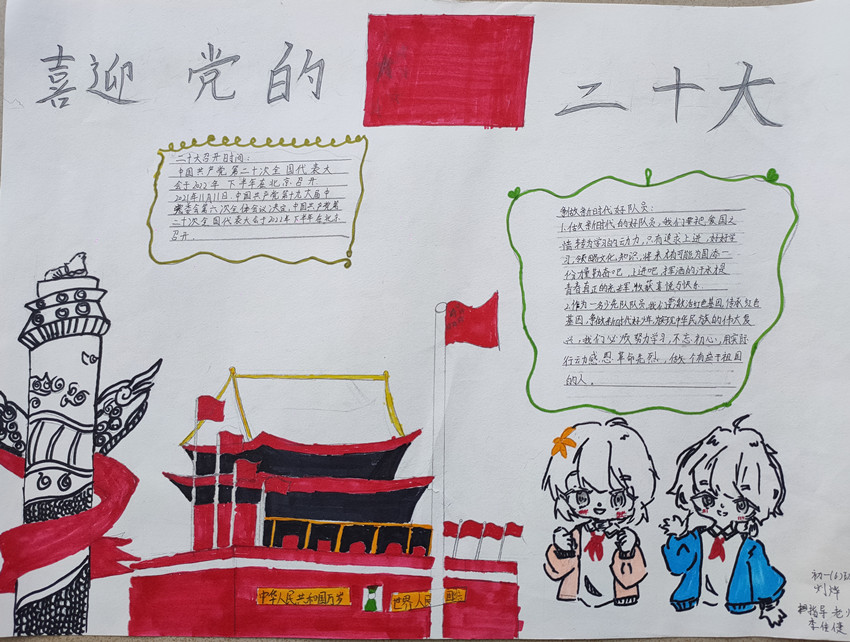 喜迎 党的 二十大
二十大召开时间：
中国共产党第二十次全国代表大
会于2022年下半年在北京召开
2021年11月11日,中国共产党第十九大届中
央委员会第六次全体会议决定,中国共产党第
二十次全国代表大会于2022年下半年在北京
召开.
争做新时代好队员：
1.做新时代的好队员,我们要把爱国之
情转为学习的动力,只有追求上进,好好学
习,领略文化,知识,将来才有可能为国添一
份力量勤奋吧,上进吧,挥洒的汗水是
青春真正的光辉,收获喜悦与快乐.
2.作为一名少先队队员,我们
基因,争做新时代好少年,实现中华民族的伟大复
兴,我们必须努力学习,不忘初心,用实际
行动感恩革命先烈,做个有益于祖国
的人。
中华人民共和国万岁
世界人民
初一(6)
刘烨
指导老
李佳